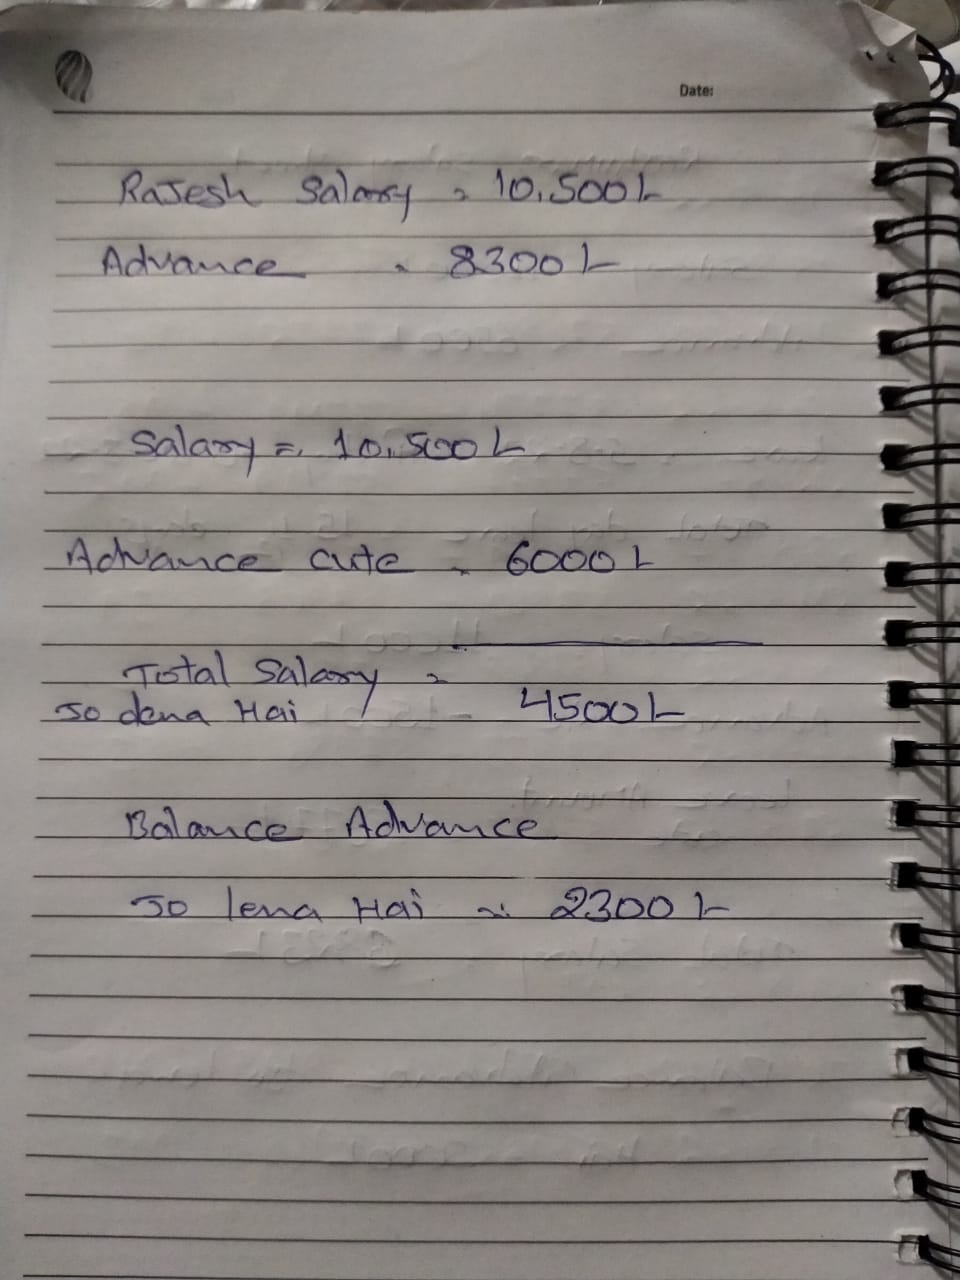 Date:
Rajesh Salary = 10,500/-
Advance = 8300/-
Salary = 10,500/-
Advance cute = 6000/-
Total Salary =
Jo dena Hai 4500/-
Balance Advance
Jo lena Hai = 2300/-